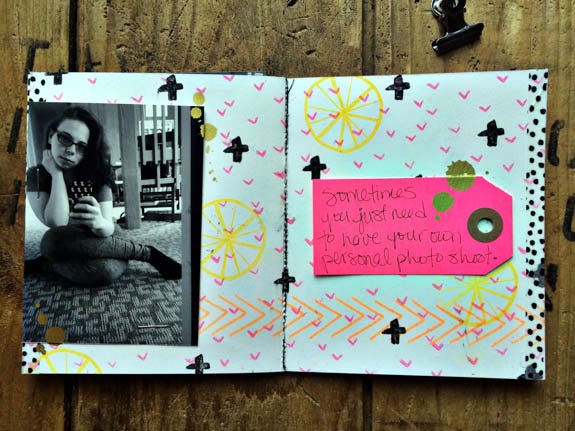 Sometimes
you just need
to have your own
personal photo shoot.